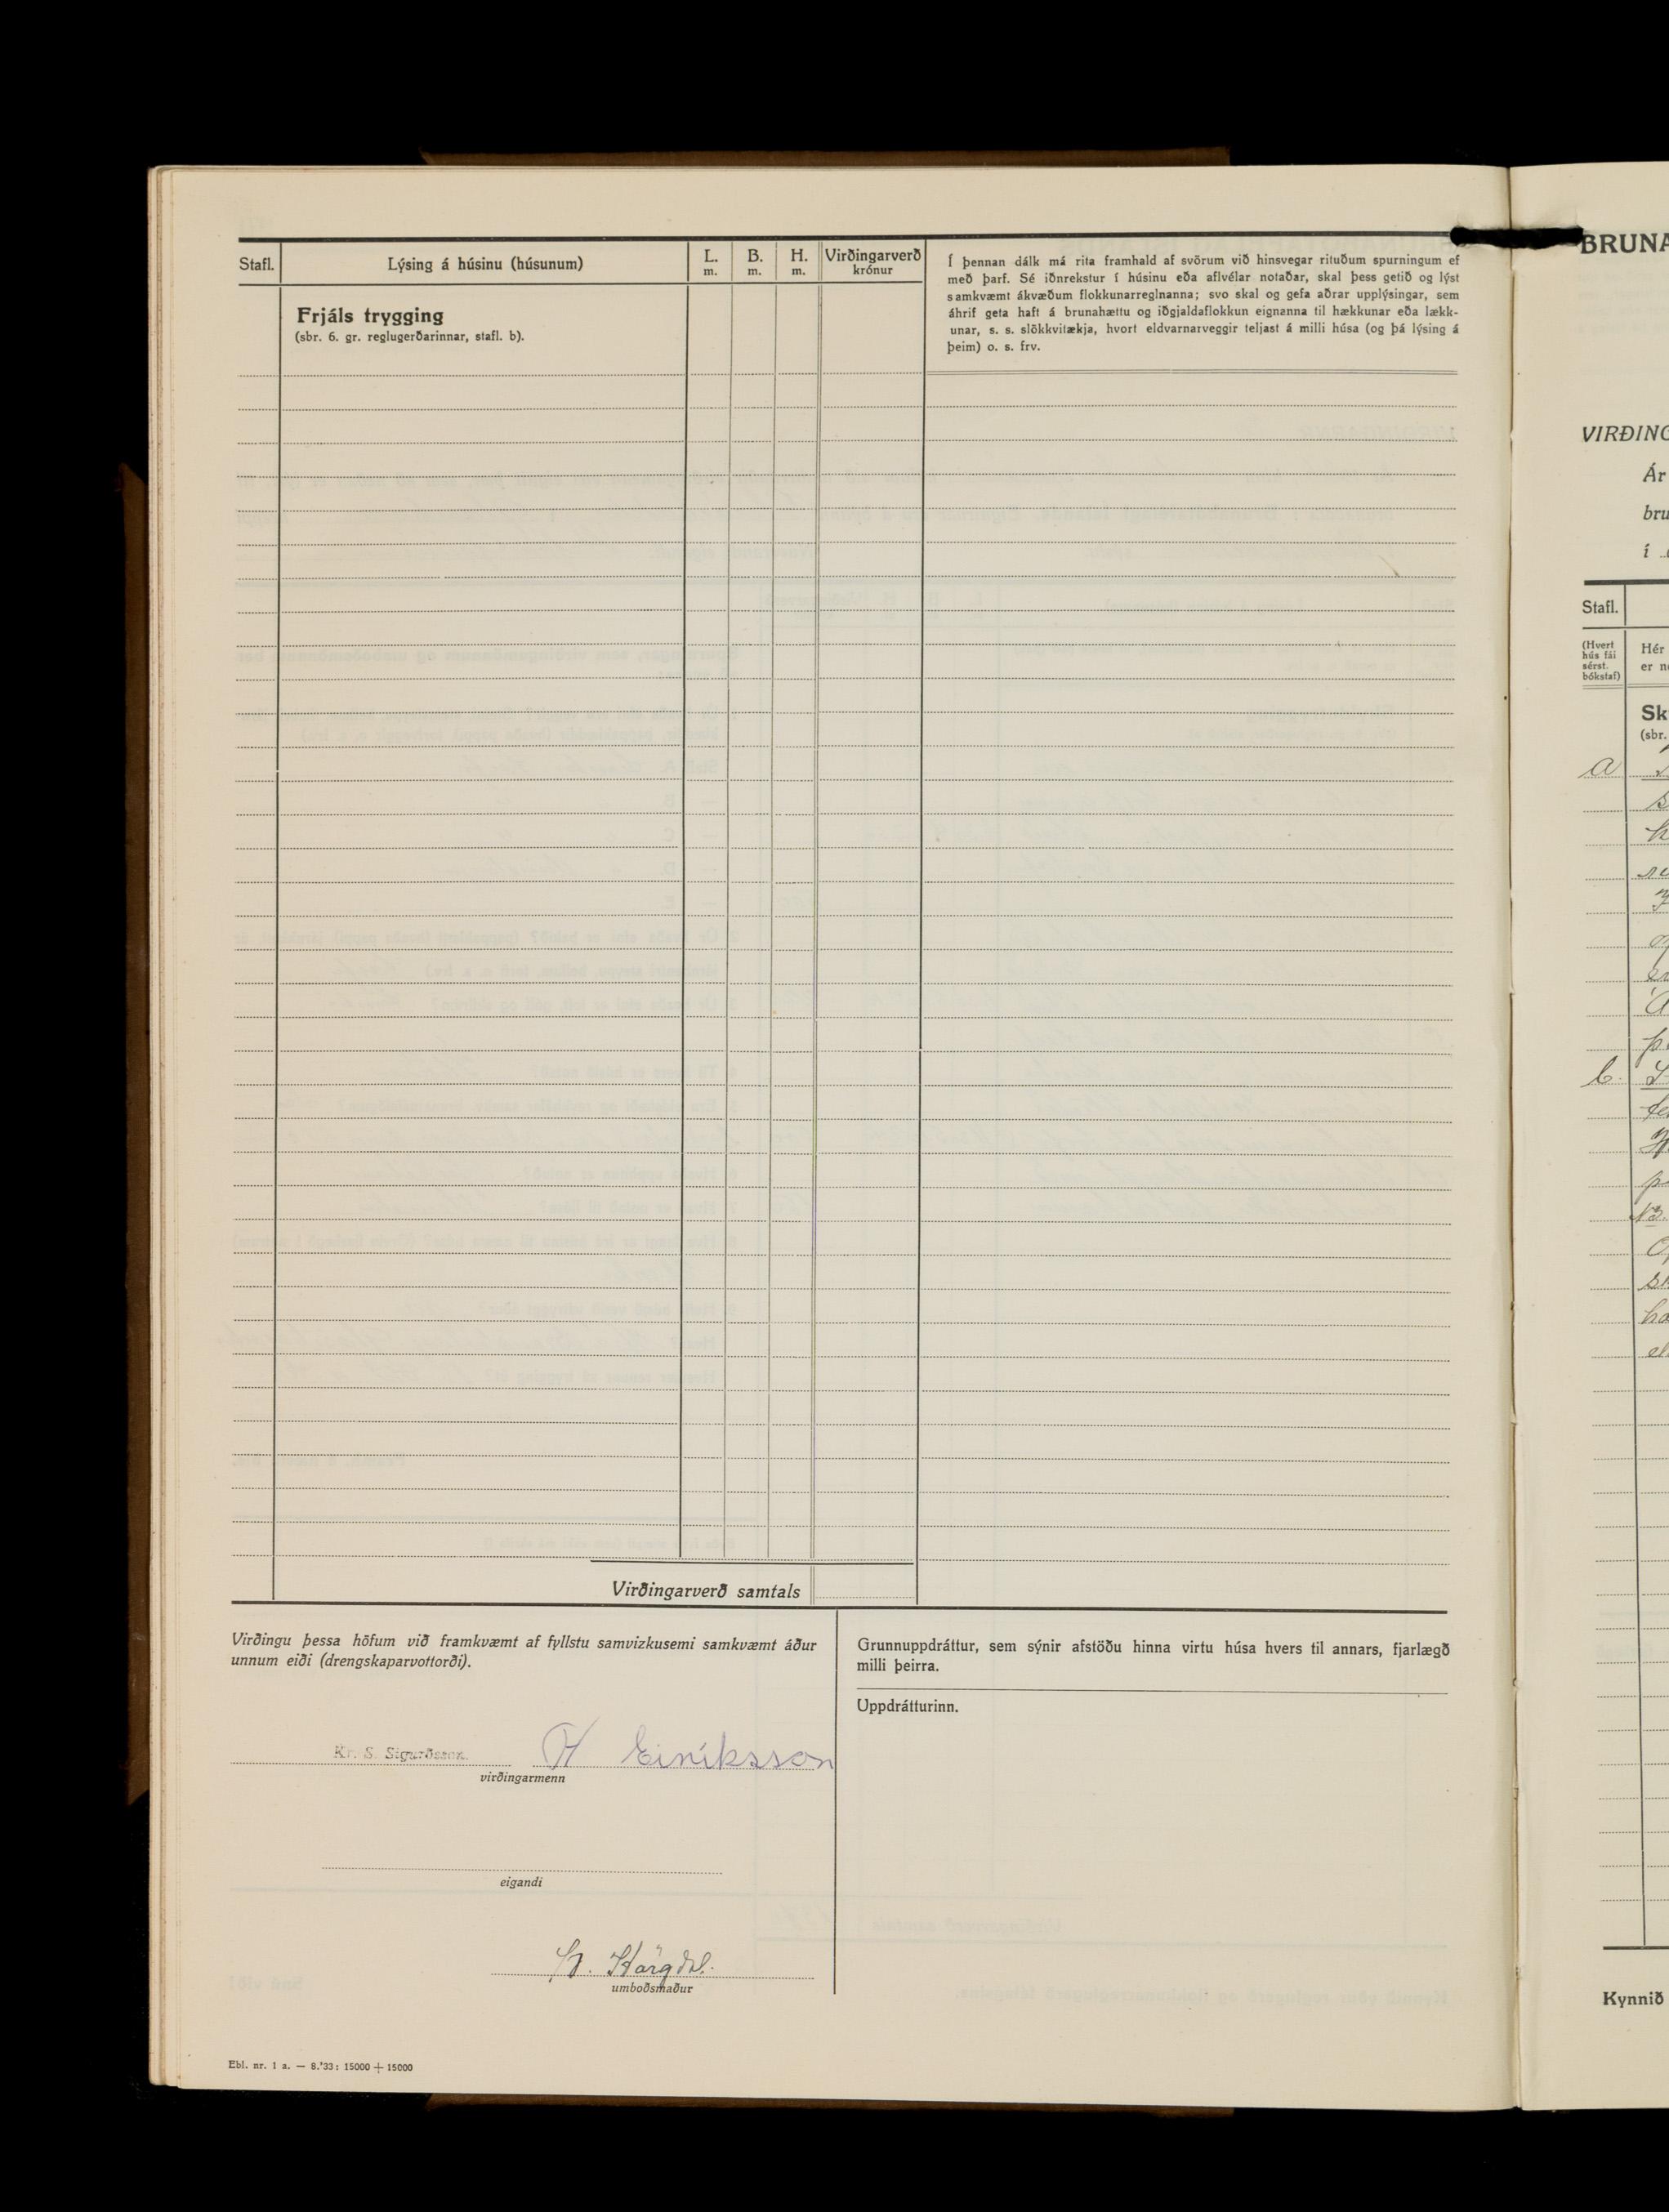 Stafl.
Lýsing á húsinu (húsunum)
L.
m.
B.
m.
H.
m.
Virðingarverð
krónur
Í þennan dálk má rita framhald af svörum við hinsvegar rituðum spurningum ef
með þarf. Sé iðnrekstur í húsinu eða aflvélar notaðar, skal þess getið og lýst
samkvæmt ákvæðum flokkunarreglnanna; svo skal og gefa aðrar upplýsingar, sem
áhrif geta haft á brunahættu og iðgjaldaflokkun eignanna til hækkunar eða lækk-
unar, s. s. slökkvitækja, hvort eldvarnarveggir teljast á milli húsa (og þá lýsing á
þeim) o. s. frv.
Frjáls trygging
(sbr. 6. gr. reglugerðarinnar, stafl. b).
Virðingarverð samtals
Virðingu þessa höfum við framkvæmt af fyllstu samvizkusemi samkvæmt áður
unnum eiði (drengskaparvottorði).
Kr. S. Sigurðsson. H Eiríksson
virðingarmenn
eigandi
Hörgdal.
umboðsmaður
Grunnuppdráttur, sem sýnir afstöðu hinna virtu húsa hvers til annars, fjarlægð
milli þeirra.
Uppdrátturinn.
Ebl. nr. 1 a. — 8.'33: 15000 + 15000
BRUNA
VIRÐING
Ár
bru
í
Stafl.
(Hvert
hús fái
sérst.
bókstaf)
Hér
er n
Sk
(sbr.
a
b.
Kynnið